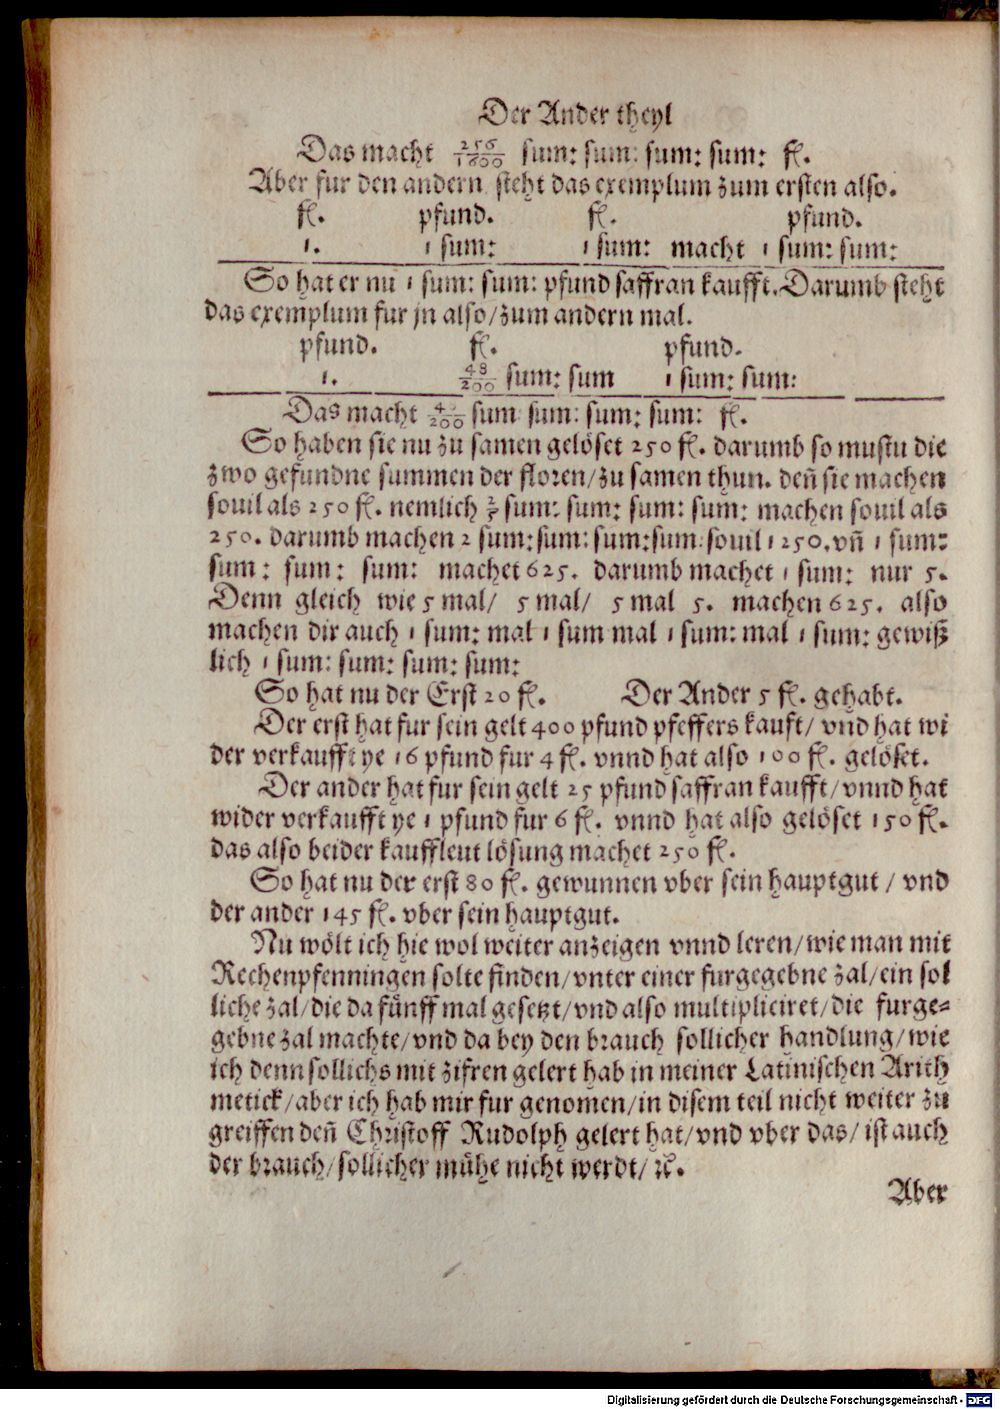 Der Ander theyl
Das macht 256/1600 sum: sum: sum: sum: fl.
Aber fur den andern steht das exemplum zum ersten also.
fl. pfund. fl. pfund.
1. 1 sum: 1 sum: macht 1 sum: sum:
So hat er nu 1 sum: sum: pfund saffran kaufft. Darumb steht
das exemplum fur jn also/zum andern mal.
pfund. fl. pfund.
1. 48/200 sum: sum 1 sum: sum:
Das macht /200 sum sum: sum: sum: fl.
So haben sie nu zu samen gelöset 250 fl. darumb so mustu die
zwo gefundne summen der floren/zu samen thun. deñ sie machen
souil als 250 fl. nemlich 2/5 sum: sum: sum: sum: machen souil als
250. darumb machen 2 sum: sum: sum: sum souil 1250. vñ 1 sum:
sum: sum: sum: machet 625. darumb machet 1 sum: nur 5.
Denn gleich wie 5 mal/ 5 mal/ 5 mal 5. machen 625. also
machen dir auch 1 sum: mal 1 sum mal 1 sum: mal 1 sum: gewiß
lich 1 sum: sum: sum: sum:
So hat nu der Erst 20 fl. Der Ander 5 fl. gehabt.
Der erst hat fur sein gelt 400 pfund pfeffers kauft/ vnd hat wi
der verkaufft ye 16 pfund fur 4 fl. vnnd hat also 100 fl. gelöset.
Der ander hat fur sein gelt 25 pfund saffran kaufft/vnnd hat
wider verkaufft ye 1 pfund fur 6 fl. vnnd hat also gelöset 150 fl.
das also beider kauffleut lösung machet 250 fl.
So hat nu der erst 80 fl. gewunnen vber sein hauptgut / vnd
der ander 145 fl. vber sein hauptgut.
Nu wölt ich hie wol weiter anzeigen vnnd leren/wie man mit
Rechenpfenningen solte finden/vnter einer furgegebne zal/ein sol
liche zal/die da fünff mal gesetzt/vnd also multipliciret/die furge=
gebne zal machte/vnd da bey den brauch sollicher handlung/wie
ich denn sollichs mit zifren gelert hab in meiner Latinischen Arith
metick/aber ich hab mir fur genomen/in disem teil nicht weiter zu
greiffen deñ Christoff Rudolph gelert hat/vnd vber das/ist auch
der brauch/sollicher mühe nicht werdt/ ꝛc.
Aber
Digitalisierung gefördert durch die Deutsche Forschungsgemeinschaft - DFG